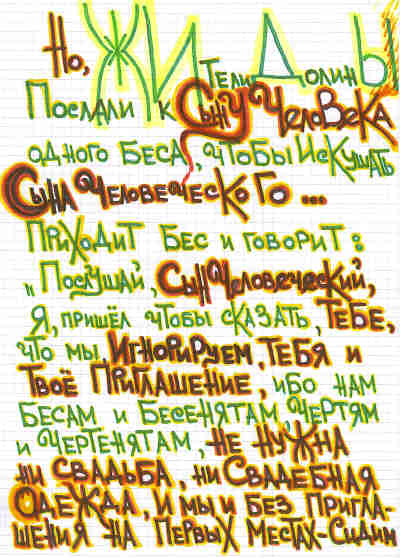 Но, ЖИДЫ
Телидолини
Послали к Сыну Человека
одного Беса, чтобы Искушать
Сына Человеческого...
Приходит Бес и говорит:
„Послушай, Сын Человеческий,
Я, пришёл чтобы сказать, Тебе,
что мы, Игнорируем, Тебя и
Твоё Приглашение, ибо нам
Бесам и Бесенятам, Чертям
и Чертенятам, не нужна
ни Свадьба, ни Свадебная
Одежда, и мы и без Пригла-
шения на Первых Местах-Сидим